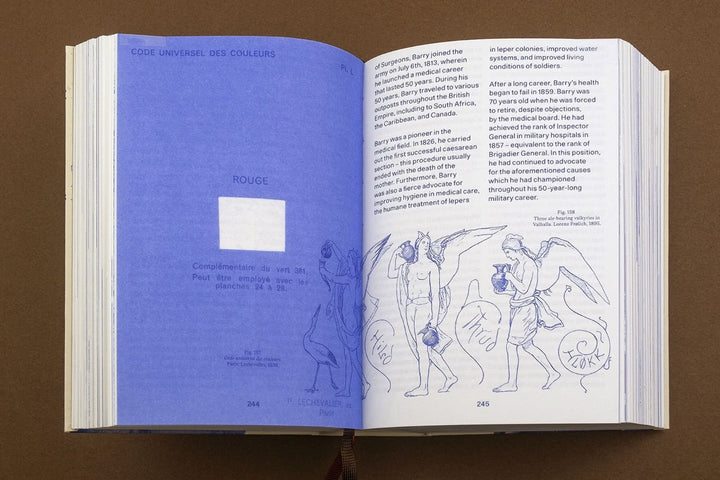 CODE UNIVERSEL DES COULEURS
Pl. L
ROUGE
Complémentaire du vert 381.
Peut être employé avec les
planches 24 à 28.
Fig. 157
Code universel des couleurs.
Paris: Lechevalier, 1936.
P. LECHEVALIER, éd.
Paris
244
of Surgeons, Barry joined the
army on July 6th, 1813, wherein
he launched a medical career
that lasted 50 years. During his
50 years, Barry traveled to various
outposts throughout the British
Empire, including to South Africa,
the Caribbean, and Canada.
Barry was a pioneer in the
medical field. In 1826, he carried
out the first successful caesarean
section – this procedure usually
ended with the death of the
mother. Furthermore, Barry
was also a fierce advocate for
improving hygiene in medical care,
the humane treatment of lepers
in leper colonies, improved water
systems, and improved living
conditions of soldiers.
After a long career, Barry's health
began to fail in 1859. Barry was
70 years old when he was forced
to retire, despite objections,
by the medical board. He had
achieved the rank of Inspector
General in military hospitals in
1857 – equivalent to the rank of
Brigadier General. In this position,
he had continued to advocate
for the aforementioned causes
which he had championed
throughout his 50-year-long
military career.
Fig. 158
Three ale-bearing valkyries in
Valhalla. Lorenz Frølich, 1895.
Hild
Thrud
HLØKK
245